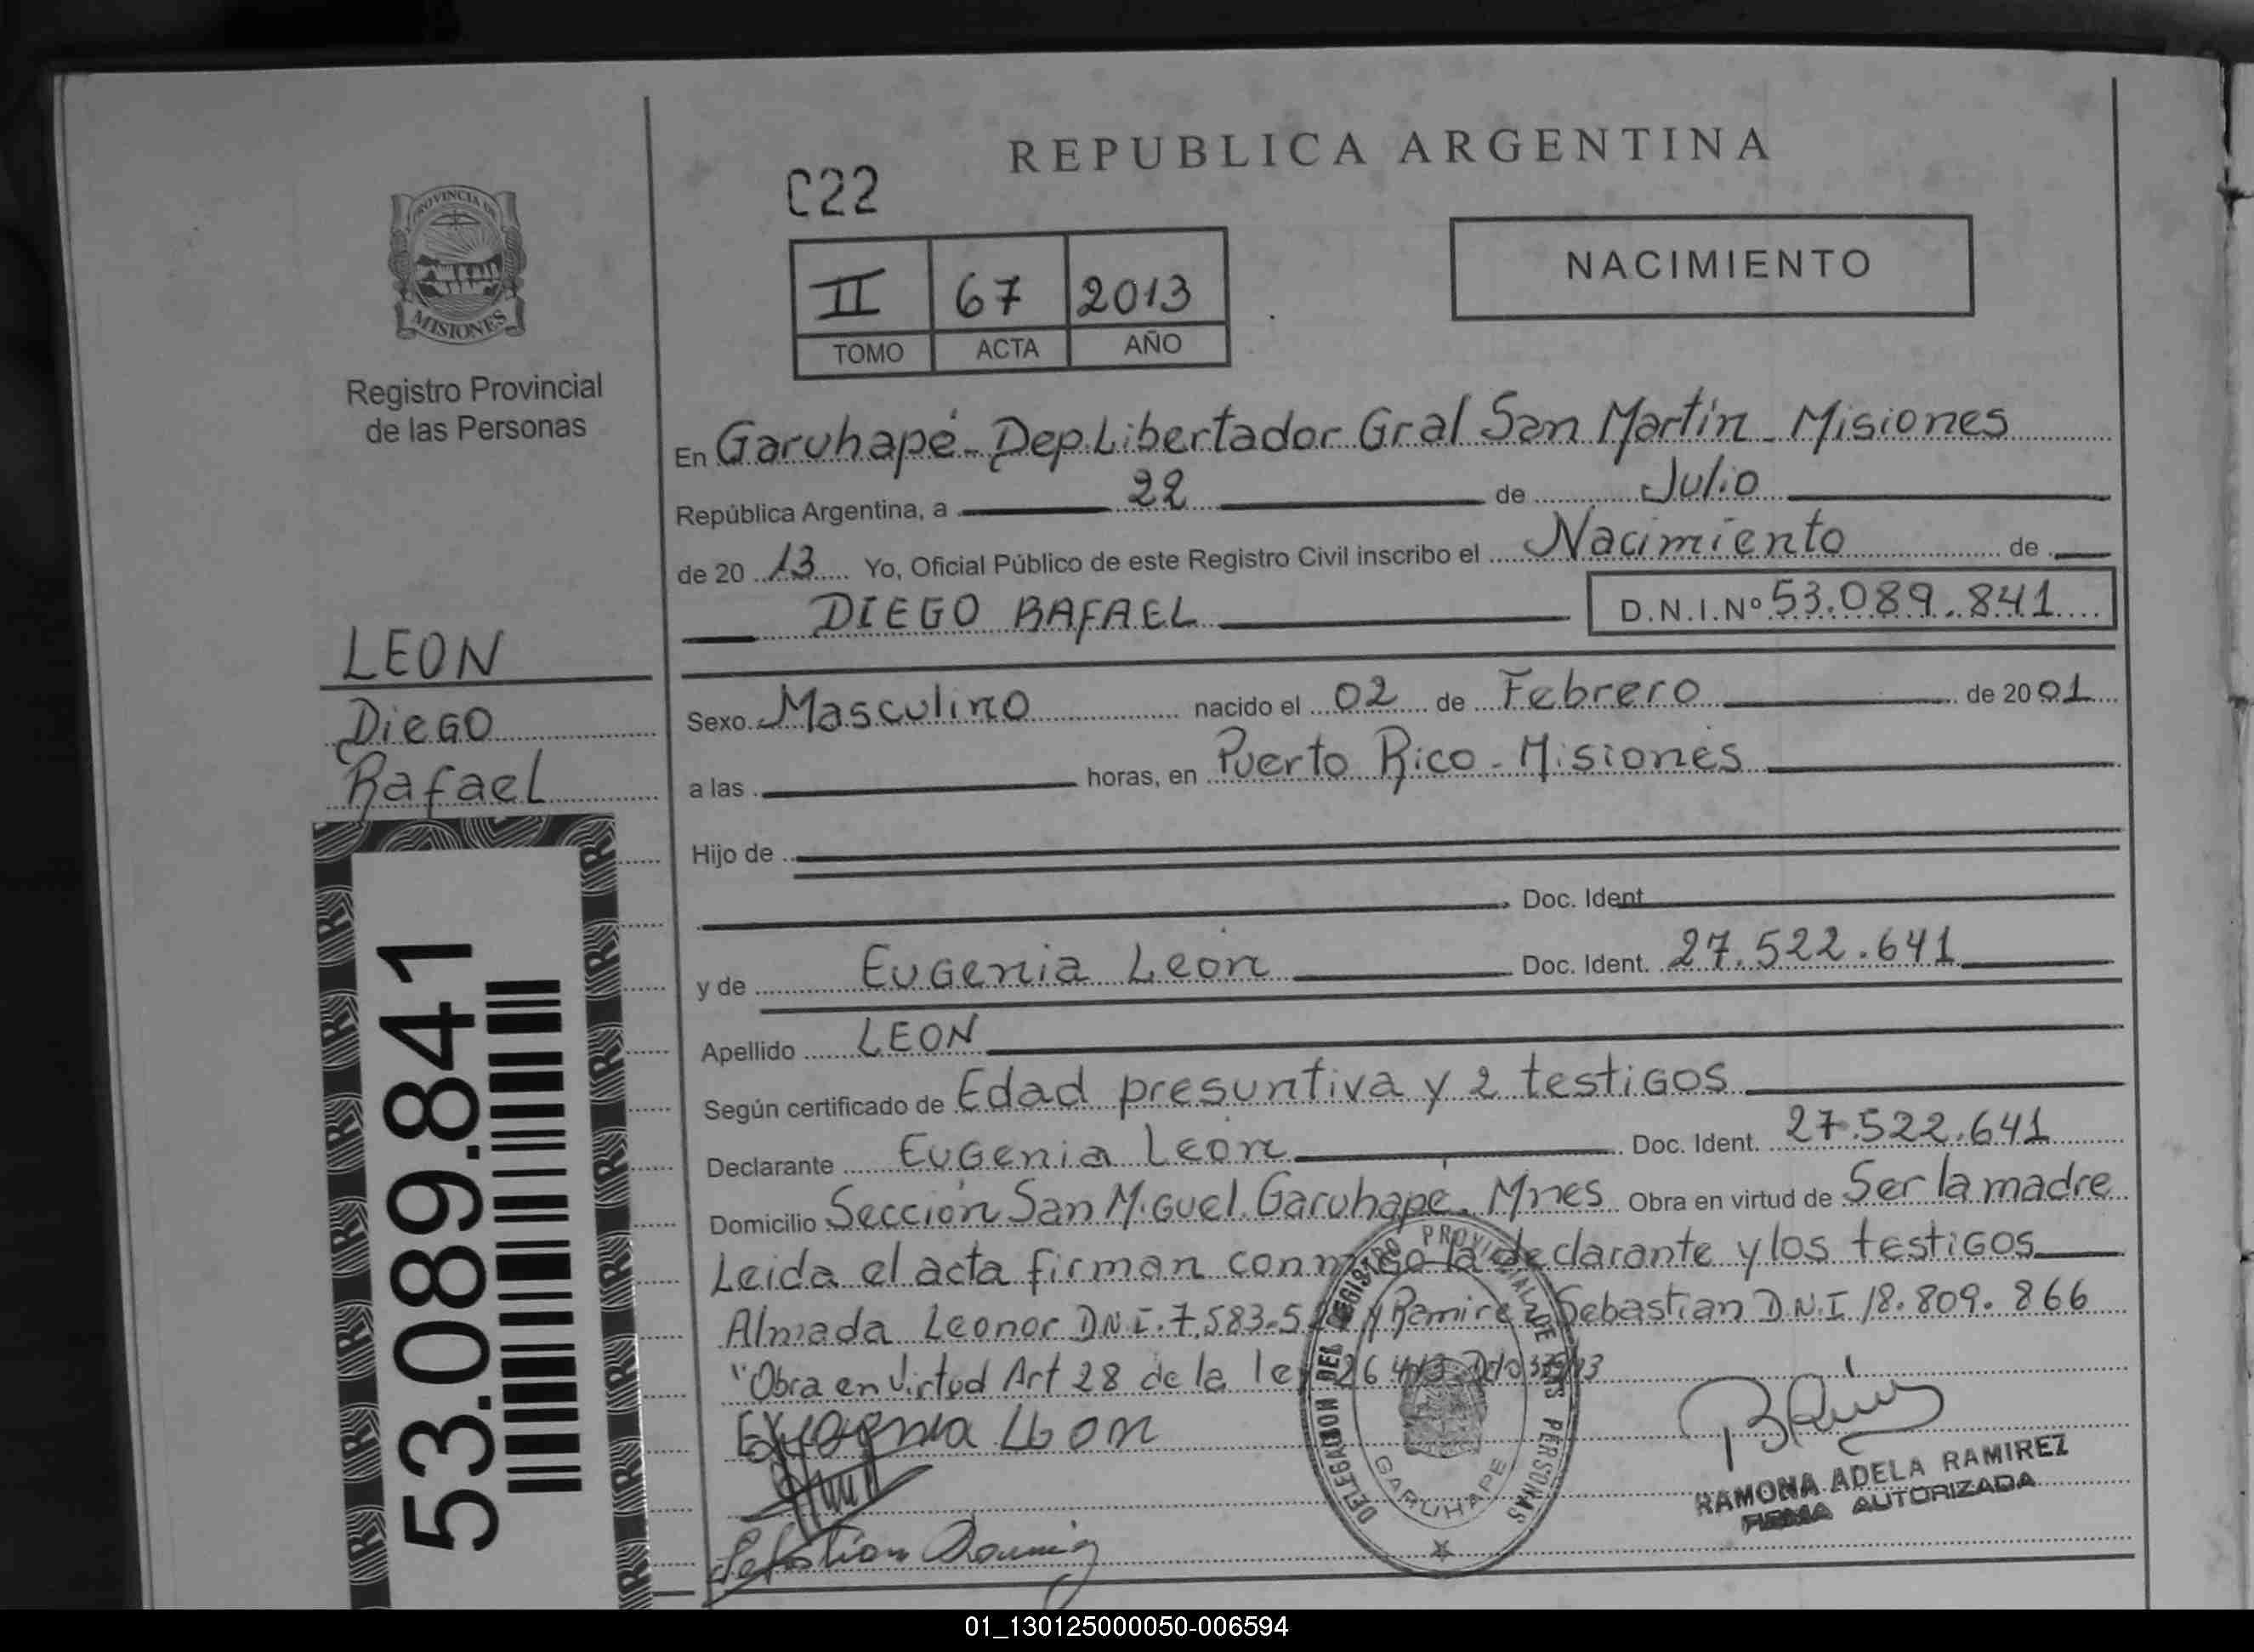 REPUBLICA ARGENTINA
C22
PROVINCIA DE
MISIONES
Registro Provincial
de las Personas
II 67 2013
TOMO ACTA AÑO
NACIMIENTO
En Garuhapé - Dep. Libertador Gral San Martín - Misiones
República Argentina, a 22 de Julio
de 20 13 Yo, Oficial Público de este Registro Civil inscribo el Nacimiento de
DIEGO RAFAEL D.N.I.Nº 53.089.841
LEON
Diego
Rafael
Sexo Masculino nacido el 02 de Febrero de 20 01
a las horas, en Puerto Rico - Misiones
Hijo de
Doc. Ident
y de Eugenia León Doc. Ident. 27.522.641
Apellido LEON
Según certificado de Edad presuntiva y 2 testigos
Declarante Eugenia León Doc. Ident. 27.522.641
Domicilio Sección San Miguel. Garuhape. Mnes Obra en virtud de Ser la madre
Leida el acta firman conmigo la declarante y los testigos
Almada Leonor DNI. 7.583.5 y Ramirez Sebastian D.N.I 18.809.866
"Obra en Virtud Art 28 de la ley 26.413
Eugenia Leon
Sebastian Ramirez
DELEGACION DEL REGISTRO PROVINCIAL DE LAS PERSONAS
GARUHAPE
RAMONA ADELA RAMIREZ
FIRMA AUTORIZADA
53.089.841
01_130125000050-006594